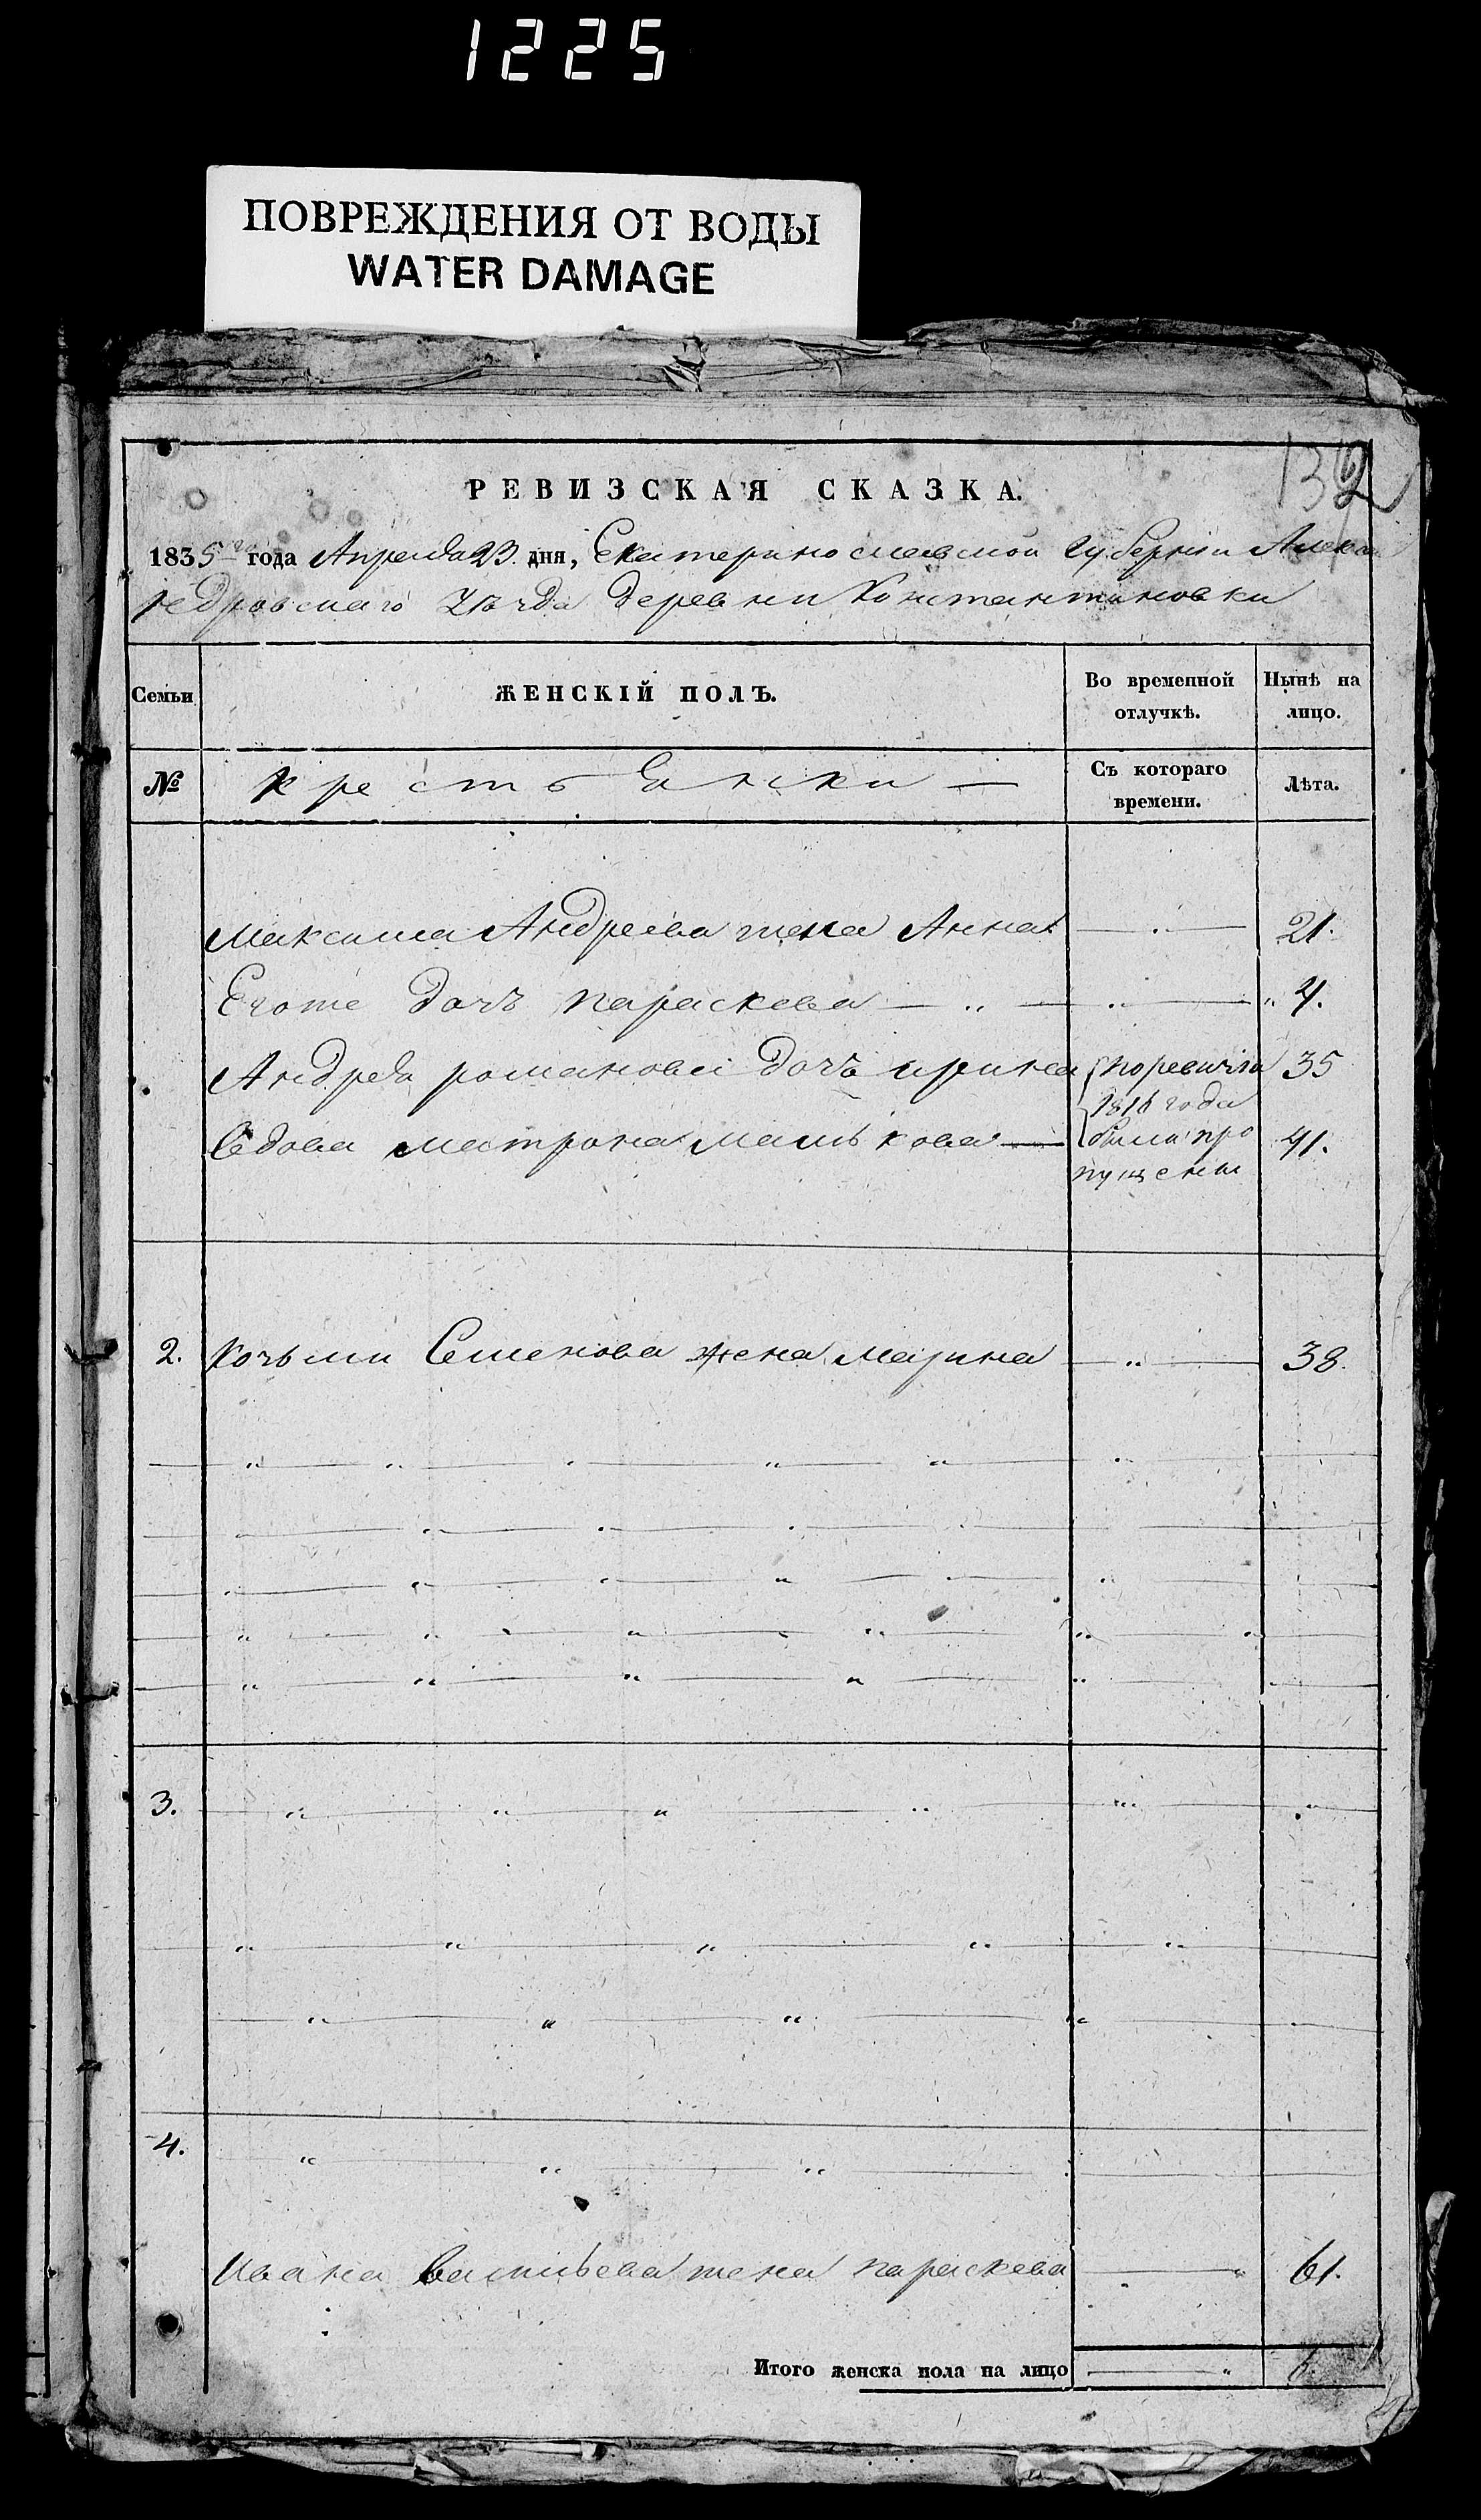 1225
ПОВРЕЖДЕНИЯ ОТ ВОДЫ
WATER DAMAGE
132
РЕВИЗСКАЯ СКАЗКА.
1835го года Апреля 23. дня, Екатеринославской губернии Алекса
ндровскаго уѣзда деревни Константиновки
Семьи ЖЕНСКІЙ ПОЛЪ. Во временной отлучкѣ. Нынѣ на лицо.
№ крестьянки — Съ котораго времени. Лѣта.
Максима Андреева жена Анна 21.
Егоже дочь параскева 4.
Андрея романова дочь ирина поревизіи 35
1816 года
Вдова матрона малькова были про 41.
пущены
2. Козьми Семенова жена марина 38.
3.
4.
Ивана Васильева жена параскева 61.
Итого женска пола на лицо 6.